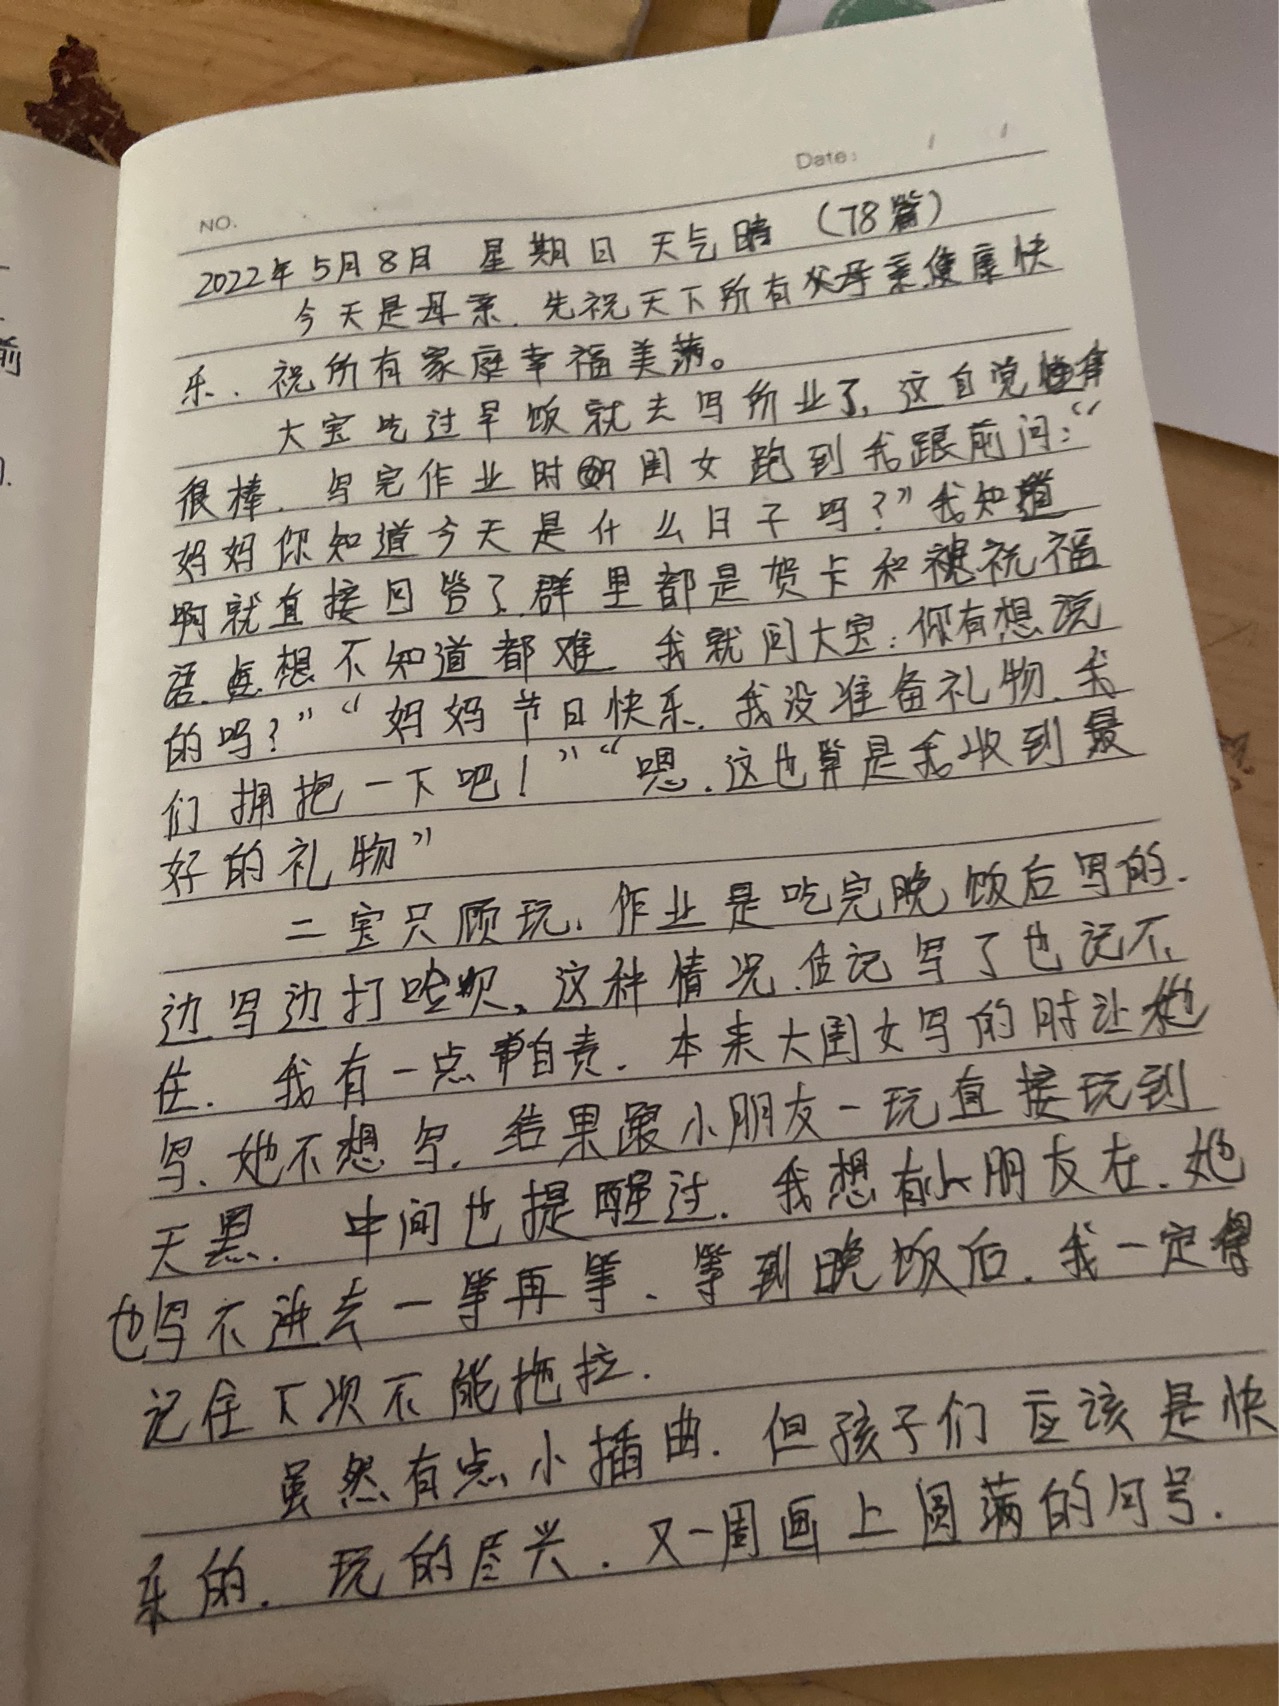 Date: / /
NO.
2022年5月8日 星期日 天气晴 (78篇)
今天是母亲.先祝天下所有父母亲健康快
乐、祝所有家庭幸福美满。
大宝吃过早饭就去写所业了,这自觉性有
很棒.写完作业时 闺女跑到我跟前问:“
妈妈你知道今天是什么日子吗?”我知道
啊就直接回答了.群里都是贺卡和祝福
语.想不知道都难.我就问大宝:你有想说
的吗?”“妈妈节日快乐.我没准备礼物.我
们拥抱一下吧!”“嗯.这也算是我收到最
好的礼物”
二宝只顾玩、作业是吃完晚饭后写的.
边写边打哈欠。这种情况.估记写了也记不
住.我有一点自责.本来大闺女写的时让她
写、她不想写.结果跟小朋友一玩直接玩到
天黑.中间也提醒过.我想有小朋友在.她
也写不进去一等再等、等到晚饭后.我一定得
记住下次不能拖拉.
虽然有点小插曲.但孩子们应该是快
乐的.玩的尽兴.又一周画上圆满的句号.
前